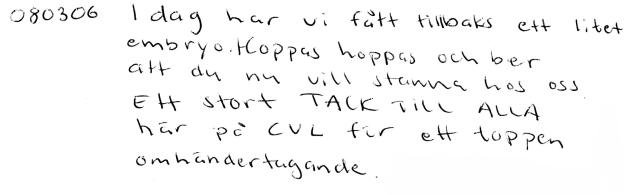 080306 I dag har vi fått tillbaks ett litet
embryo. Hoppas hoppas och ber
att du nu vill stanna hos oss
Ett stort TACK TILL ALLA
här på CVL för ett toppen
omhändertagande.